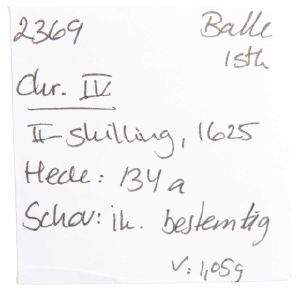 2369 Balle
Isth
Chr. IV
II-skilling, 1625
Hede: 134a
Schou: ik. bestemtig
V: 1,05g